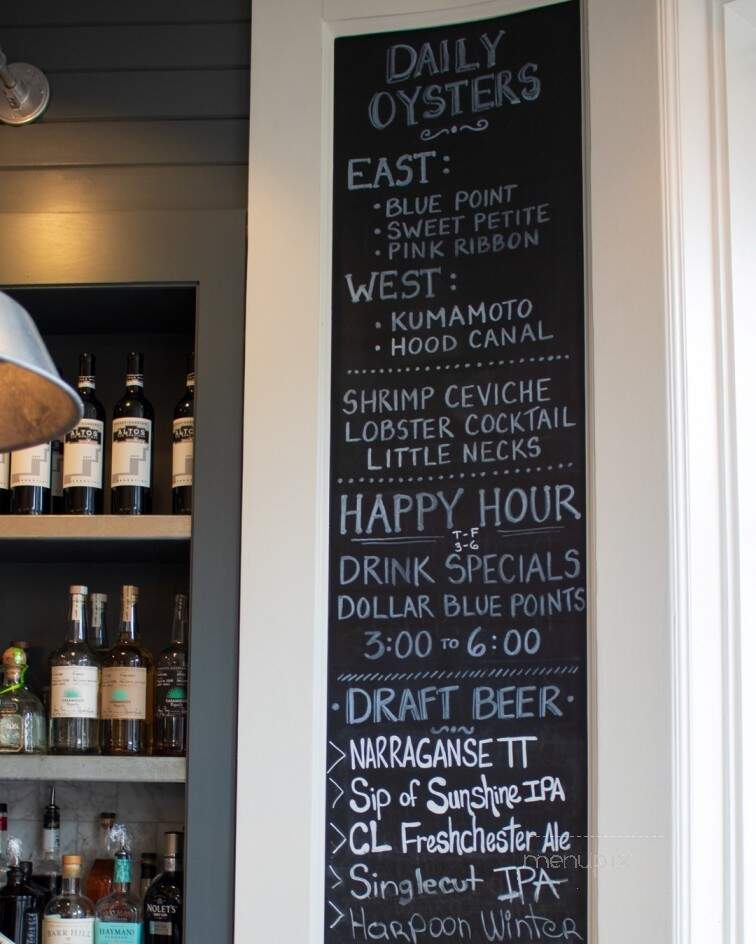 DAILY
OYSTERS
EAST:
• BLUE POINT
• SWEET PETITE
• PINK RIBBON
WEST:
• KUMAMOTO
• HOOD CANAL
SHRIMP CEVICHE
LOBSTER COCKTAIL
LITTLE NECKS
HAPPY HOUR
T-F
3-6
DRINK SPECIALS
DOLLAR BLUE POINTS
3:00 TO 6:00
• DRAFT BEER •
> NARRAGANSETT
> Sip of Sunshine IPA
> CL Freshchester Ale
> Singlecut IPA
> Harpoon Winter
ALTOS
ALTOS
ALTOS
BARR HILL
HAYMAN'S
NOLET'S